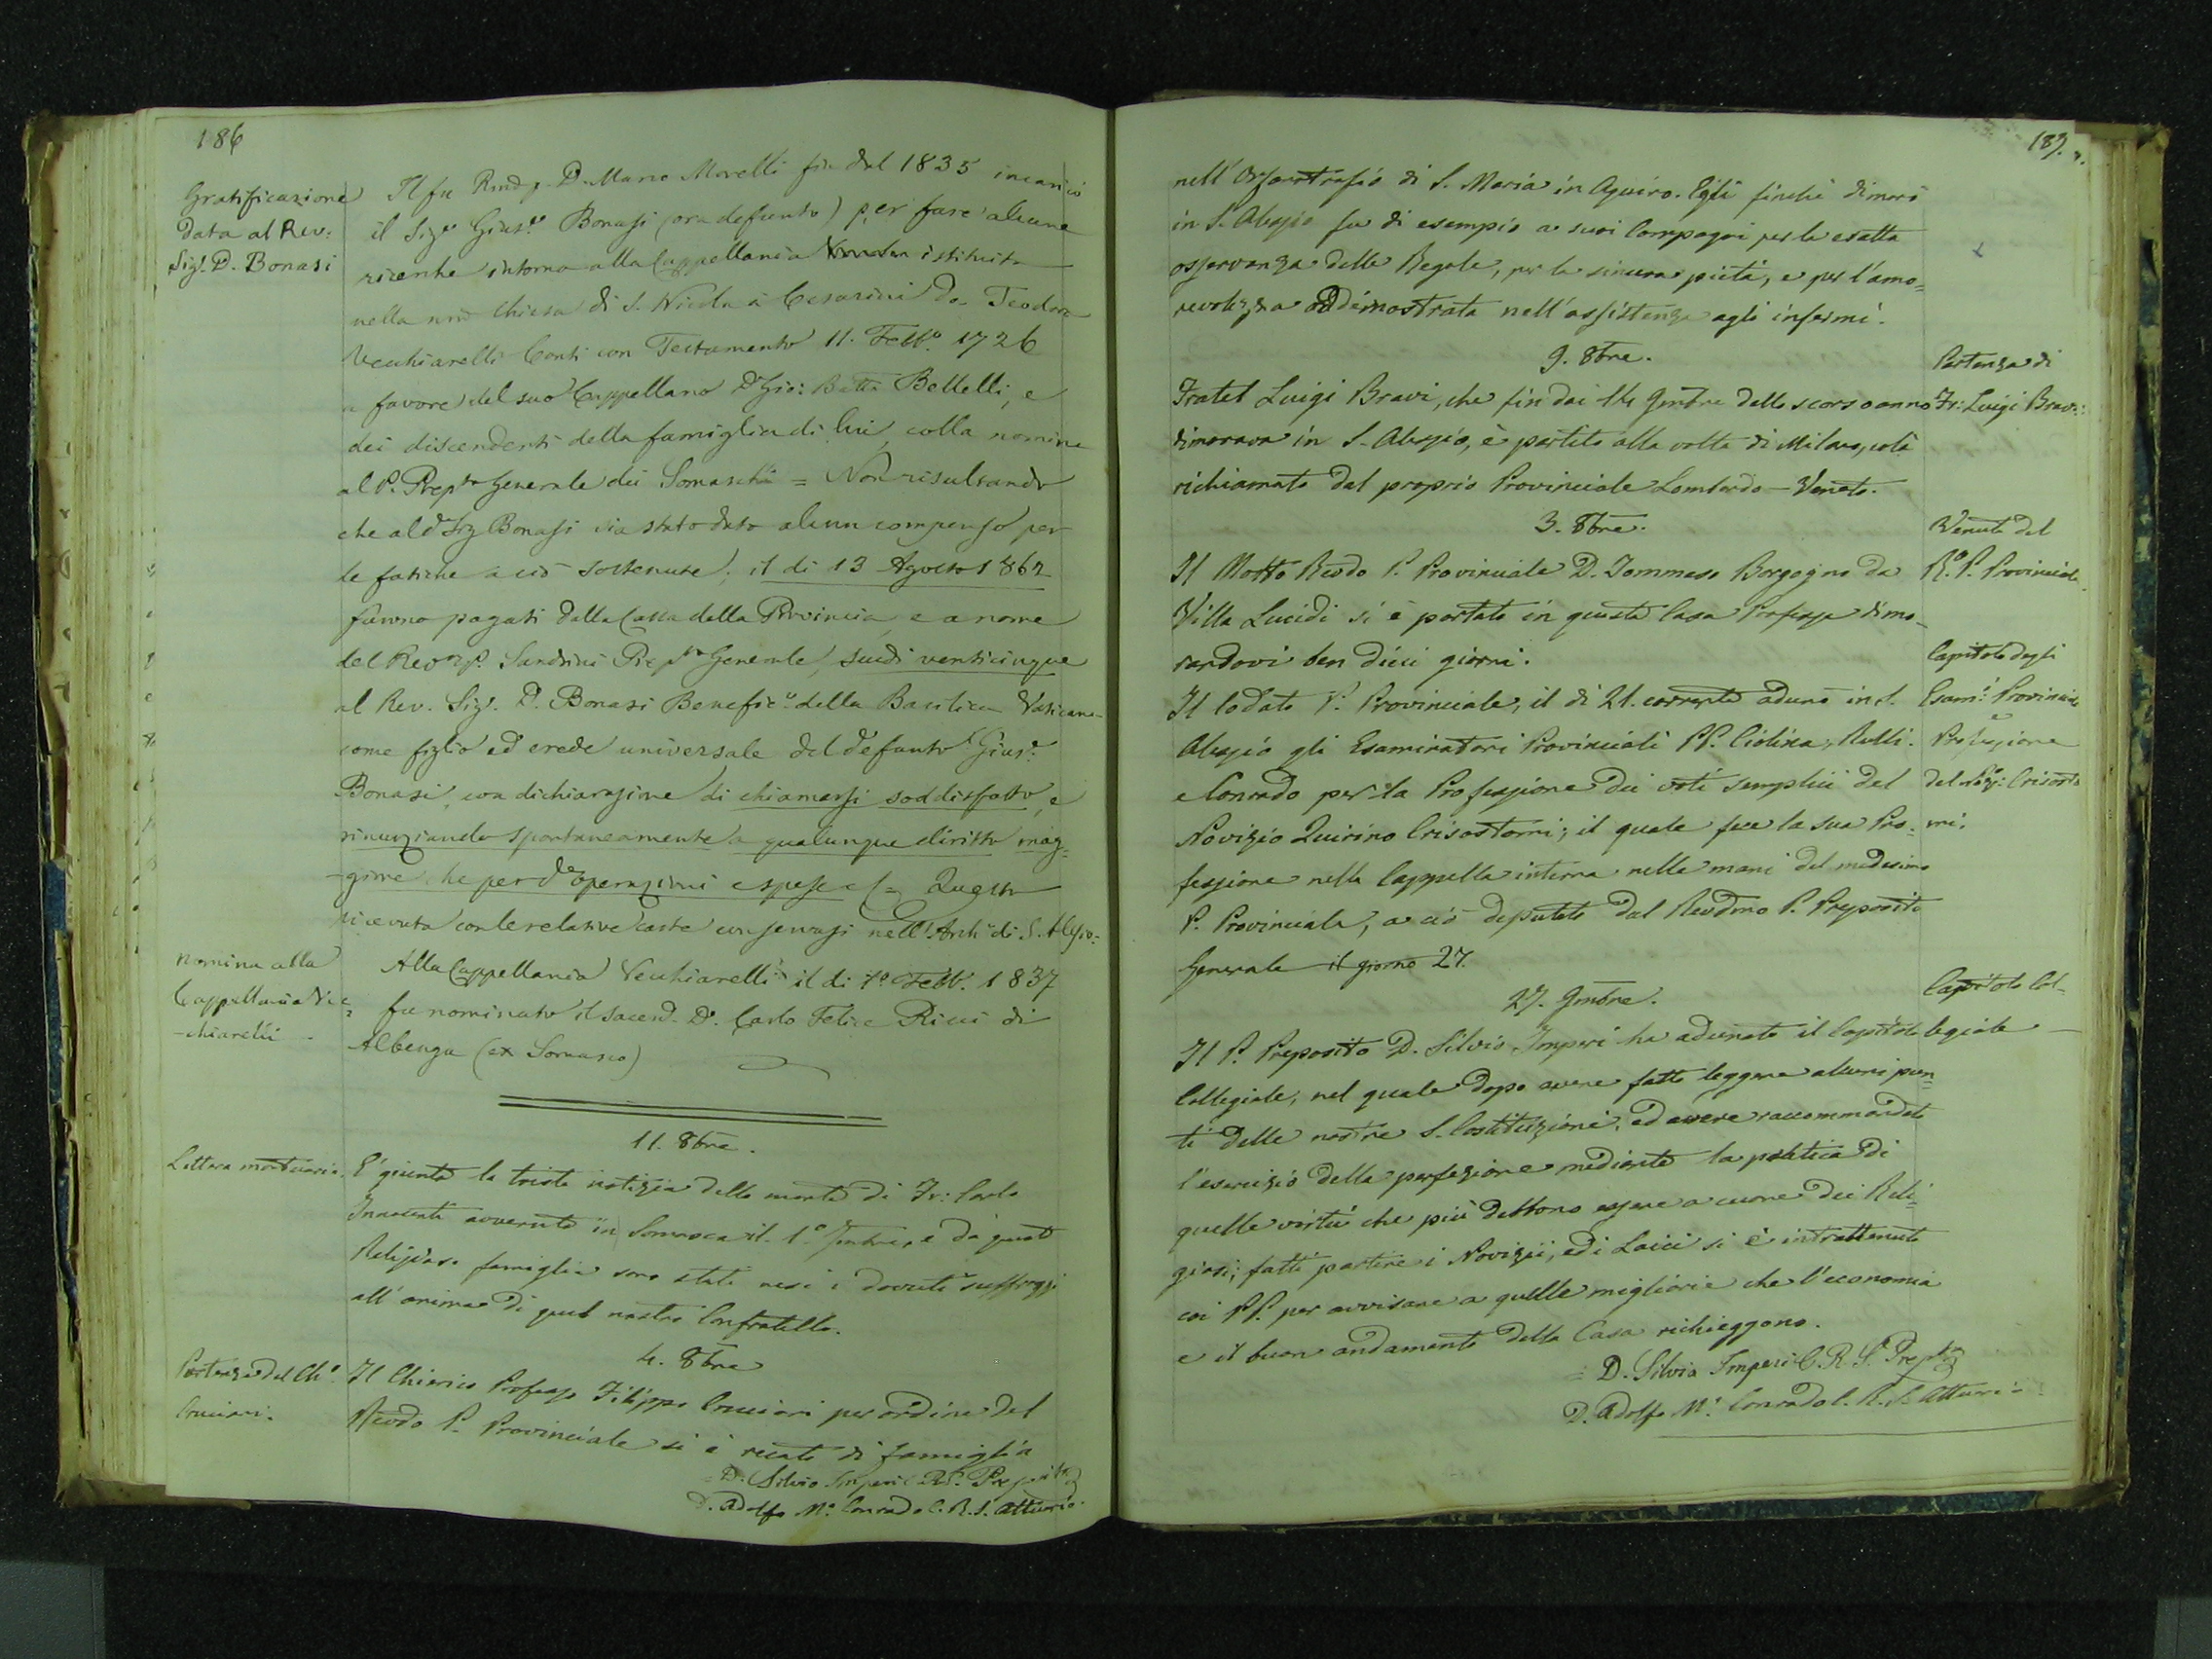 186
Gratificazione
data al Rev:
Sigr. D. Bonasi
Il fu Rmo p. D. Marco Morelli fin dal 1835 incaricò
il Sigr Giuse Bonasi (ora defunto) per fare alcune
ricerche intorno alla Cappellania istituita
nella nra Chiesa di S. Nicola a' Cesarini da Teodora
Vecchiarelli Conti con Testamento 11. Febb.o 1726
a favore del suo Cappellano D. Gio: Batta Bettelli, e
dei discendenti della famiglia di lui, colla nomina
al P. Prepto Generale dei Somaschi = Non risultando
che al do Sig Bonasi sia stato dato alcun compenso per
le fatiche a ciò sostenute, il di 13 Agosto 1862
furono pagati dalla Cassa della Provincia, e a nome
del Revmo P. Sandrini Prepto Generale, scudi venticinque
al Rev. Sigr. D. Bonasi Benefico della Basilica Vaticana
come figlio ed erede universale del defunto Giuse
Bonasi, con dichiarazione di chiamarsi soddisfatto, e
rinunziando spontaneamente a qualunque diritto mag=
-giore che per de operazioni e spese = Questa
ricevuta con le relative carte conservasi nell'Archo di S. Alesio=
Nomina alla
Cappellania Vec=
-chiarelli -
Alla Cappellania Vecchiarelli il di 1o Febb. 1837
fu nominato il Sacerd. D. Carlo Felice Ricci di
Albenga (ex Somasco)
11. 8bre.
Lettera mortuaria.
E' giunta la triste notizia della morte di Fr: Carlo
Innocenti avvenuta in Somasca il 1o 7mbre, e da questa
Religiosa famiglia sono stati resi i dovuti suffragj
all'anima di quel nostro Confratello.
4. 8bre
Partenza del Cho
Cruciani.
Il Chierico Professo Filippo Cruciani per ordine del
Revdo P. Provinciale si è recato di famiglia
= D. Silvio Imperi C. R. S. Preposito
D. Adolfo Ma Conrado C. R. S. Attuario.
187.
nell'Orfanotrofio di S. Maria in Aquiro. Egli finchè dimorò
in S. Alessio fu di esempio a' suoi Compagni per la esatta
osservanza delle Regole, per la sincera pietà, e per l'amo=
revolezza addimostrata nell'assistenza agli infermi.
9. 8bre.
Partenza di
Fr: Luigi Bravi:
Fratel Luigi Bravi, che fin dai 14 9mbre dello scorso anno
dimorava in S. Alessio, è partito alla volta di Milano, colà
richiamato dal proprio Provinciale Lombardo-Veneto.
3. 8bre.
Venuta del
Ro. P. Provinciale
Il Molto Revdo P. Provinciale D. Tommaso Borgogno da
Villa Lucidi si è portato in questa Casa Professa dimo-
randovi ben dieci giorni.
Capitolo degli
Esamri Provinciali
Professione
del Noz: Crisosto
mi.
Il lodato P. Provinciale, il di 21. corrente adunò in S.
Alessio gli Esaminatori Provinciali PP. Ciolina, Rulli.
e Conrado per la Professione dei voti semplici del
Novizio Quirino Crisostomi; il quale fece la sua Pro.
fessione nella Cappella interna nelle mani del medesimo
P. Provinciale, a ciò deputato dal Revdmo P. Preposito
Generale il giorno 27.
27. 9mbre.
Capitolo Col-
legiale
Il P. Preposito D. Silvio Imperi ha adunato il Capitolo
Collegiale, nel quale dopo avere fatto leggere alcuni pun=
ti delle nostre S. Costituzioni, ed avere raccommandato
l'esercizio della perfezione mediante la pratica di
quelle virtù che più debbono essere a cuore dei Reli=
giosi; fatti partire i Novizii, ed i Laici si è intrattenuto
coi PP. per avvisare a quelle migliorie che l'economia
e il buon andamento della Casa richieggono.
= D. Silvio Imperi C. R. S. Prepto
D. Adolfo Ma Conrado C. R. S. Attuario